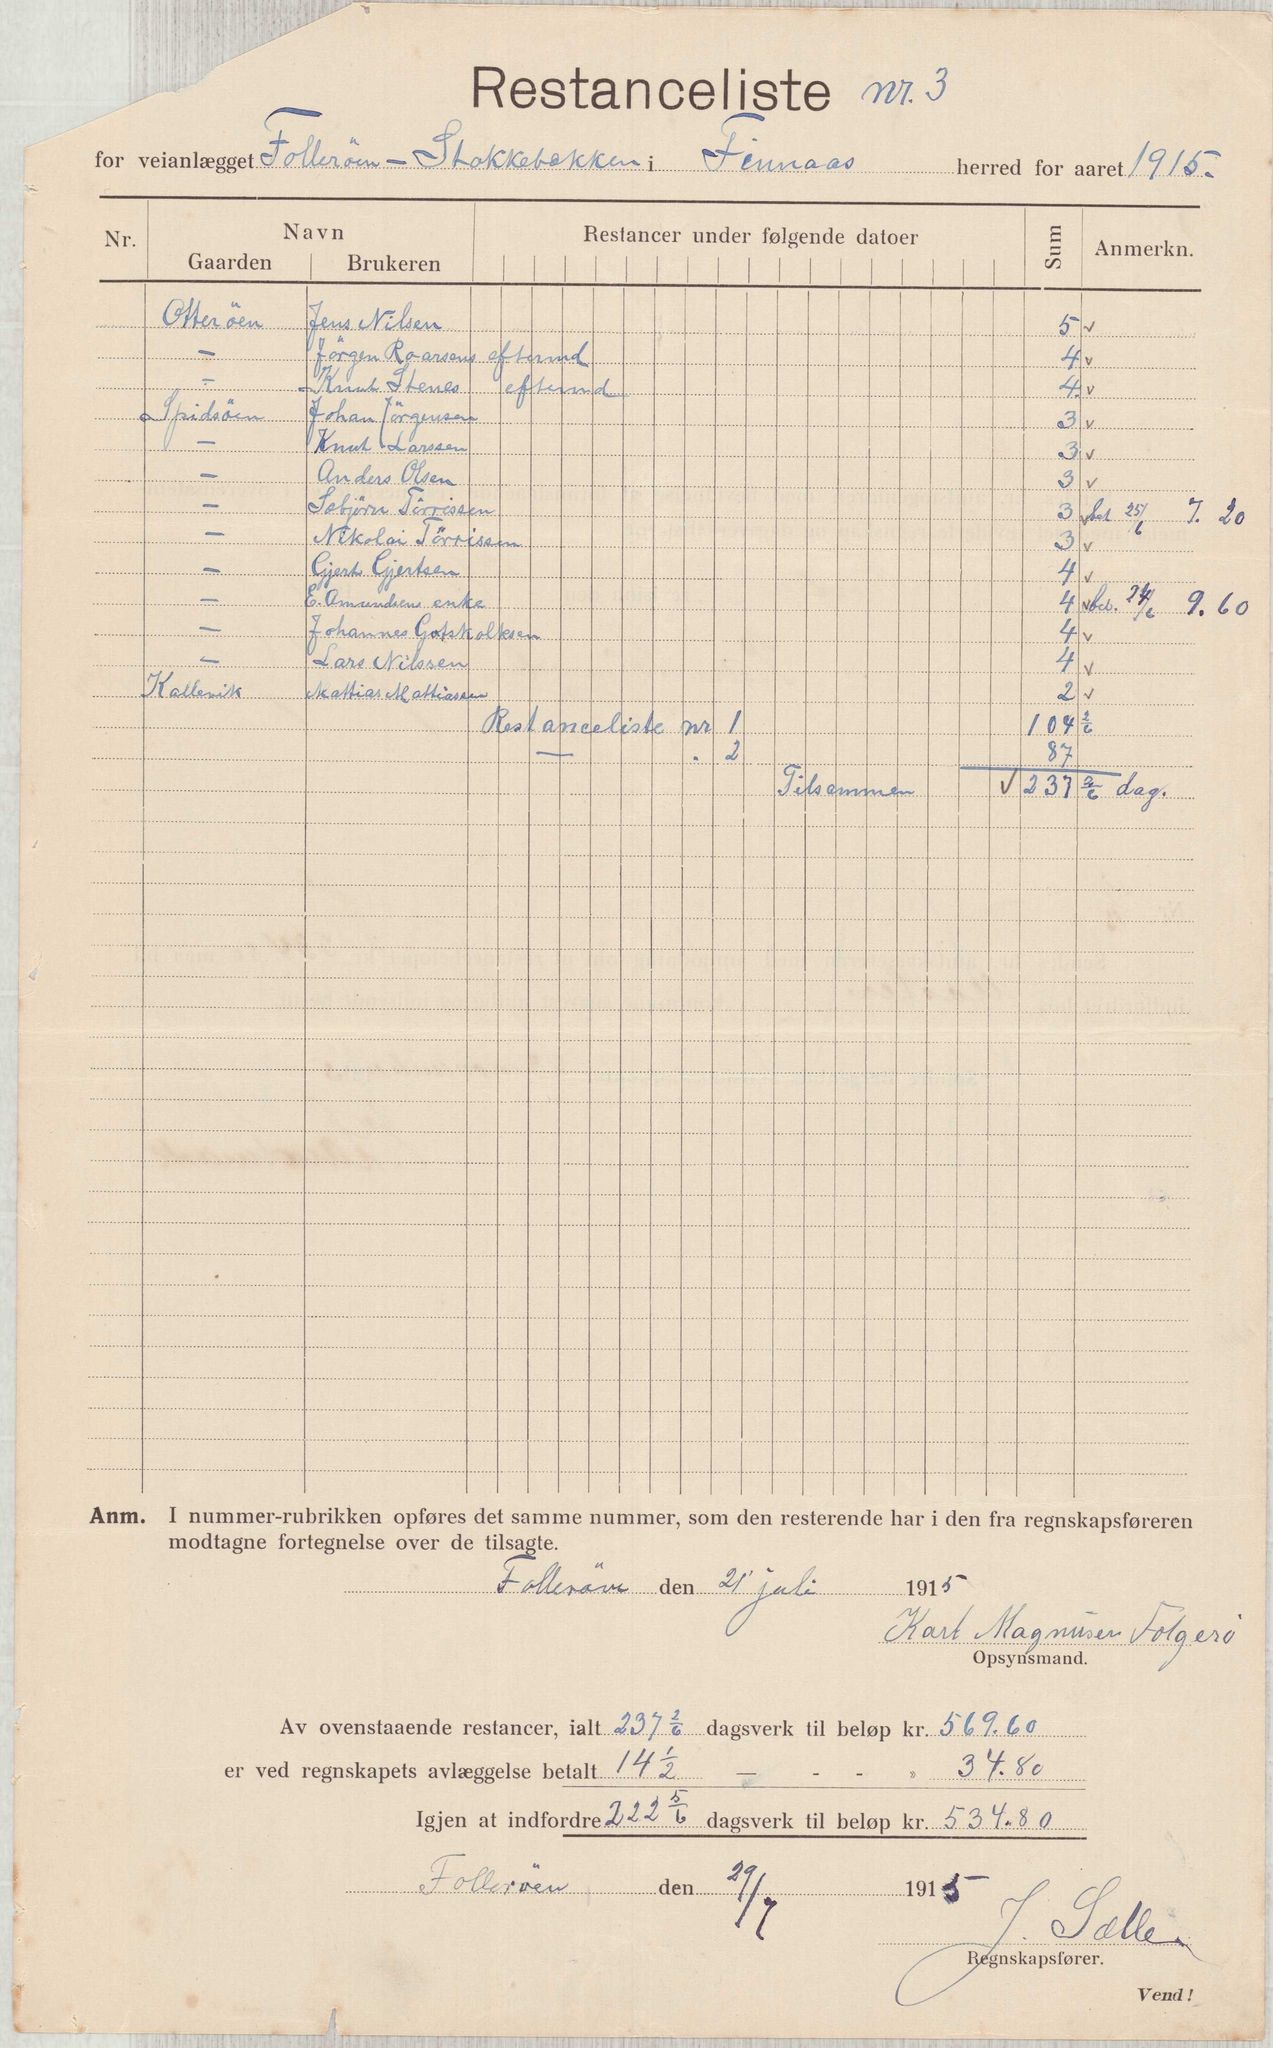 Restanceliste nr. 3
for veianlægget Folleröen - Stokkebækken i Finnaas herred for aaret 1915.
Nr. Navn Restancer under følgende datoer Sum Anmerkn.
Gaarden Brukeren
Otteröen Jens Nilsen 5 v
— Jörgen Roarsens eftermd 4 v
— Knut Stenes eftermd 4 v
Spidsöen Johan Jörgensen 3 v
— Knut Larssen 3 v
— Anders Olsen 3 v
— Sebjörn Törrissen 3 v bet 25/6 7.20
— Nikolai Törrissen 3 v
— Gjert Gjertsen 4 v
— E. Amundsens enke 4 v bet. 24/6 9.60
— Johannes Gotskalksen 4 v
— Lars Nilssen 4 v
Kallevik Mattias Mattiassen 2 v
Restanceliste nr 1 104 2/6
— . 2 87
Tilsammen √ 237 2/6 dag.
Anm. I nummer-rubrikken opføres det samme nummer, som den resterende har i den fra regnskapsføreren
modtagne fortegnelse over de tilsagte.
Folleröen den 21 juli 1915
Karl Magnusen Folgerö
Opsynsmand.
Av ovenstaaende restancer, ialt 237 2/6 dagsverk til beløp kr. 569.60
er ved regnskapets avlæggelse betalt 14 1/2 — - - » 34.80
Igjen at indfordre 222 5/6 dagsverk til beløp kr. 534.80
Folleröen den 29/7 1915
J. Sælle
Regnskapsfører.
Vend!